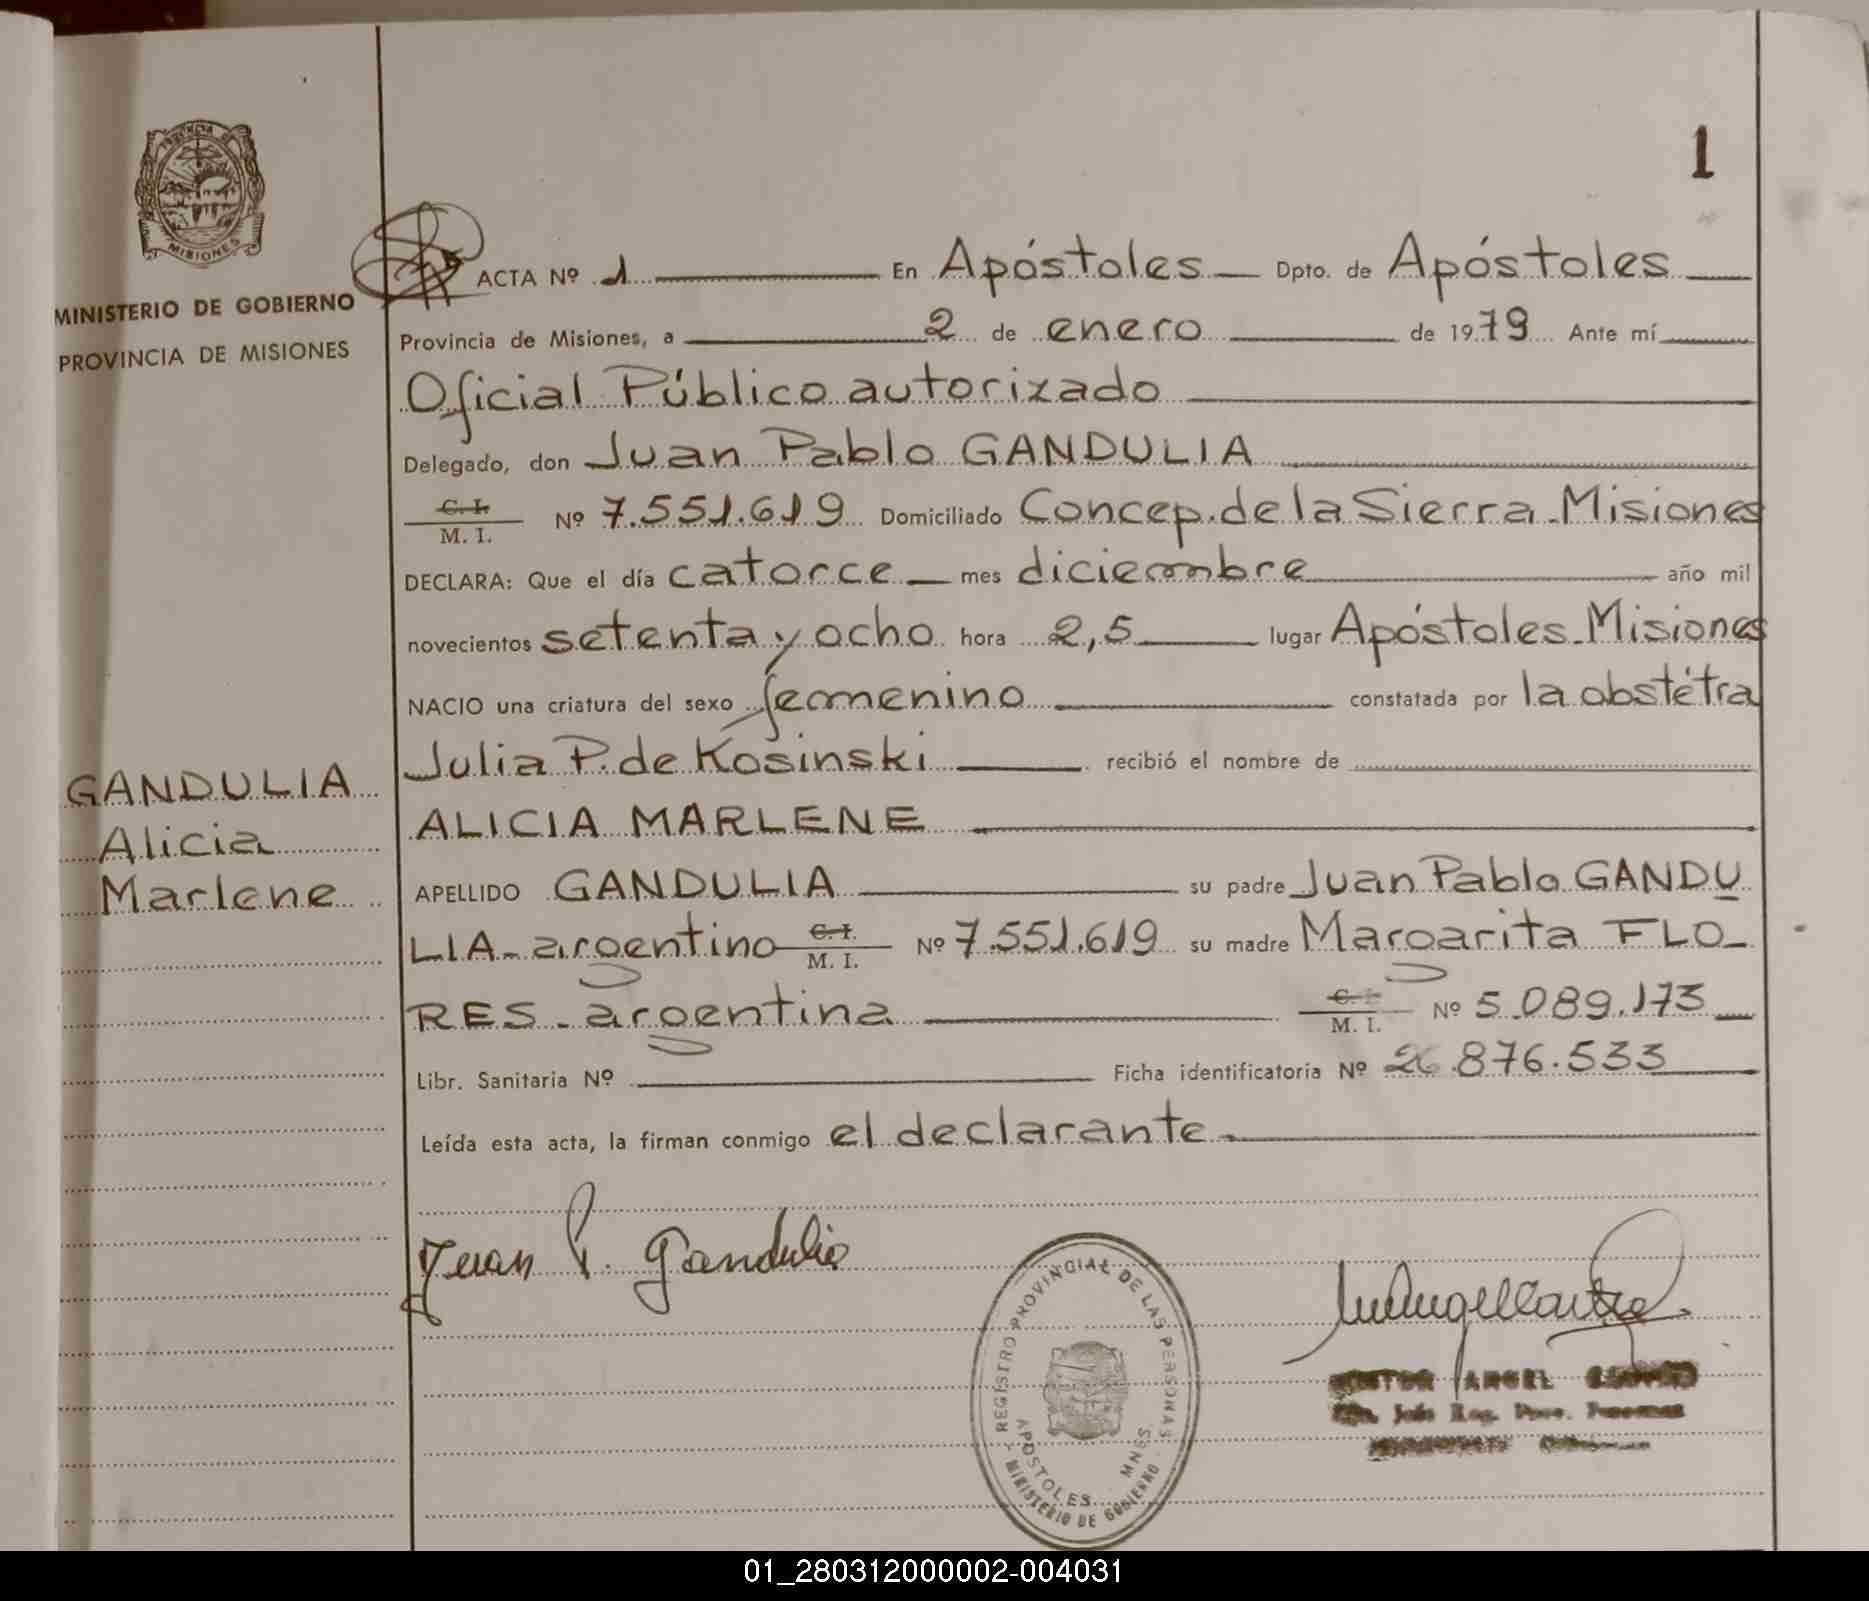 1
PROVINCIA DE
MISIONES
MINISTERIO DE GOBIERNO
PROVINCIA DE MISIONES
GANDULIA
Alicia
Marlene
ACTA Nº 1 En Apóstoles Dpto. de Apóstoles
Provincia de Misiones, a 2 de enero de 1979 Ante mí
Oficial Público autorizado
Delegado, don Juan Pablo GANDULIA
C. I.
M. I. Nº 7.551.619 Domiciliado Concep. de la Sierra - Misiones
DECLARA: Que el día catorce mes diciembre año mil
novecientos setenta y ocho hora 2,5 lugar Apóstoles - Misiones
NACIO una criatura del sexo femenino constatada por la obstétra
Julia P. de Kosinski recibió el nombre de
ALICIA MARLENE
APELLIDO GANDULIA su padre Juan Pablo GANDU
LIA - argentino C. I. M. I. Nº 7.551.619 su madre Margarita FLO-
RES - argentina C. I. M. I. Nº 5.089.173
Libr. Sanitaria Nº Ficha identificatoria Nº 26.876.533
Leída esta acta, la firman conmigo el declarante
Juan P. Gandulia
REGISTRO PROVINCIAL DE LAS PERSONAS
MINISTERIO DE GOBIERNO
APOSTOLES MNES.
ANGEL
01_280312000002-004031